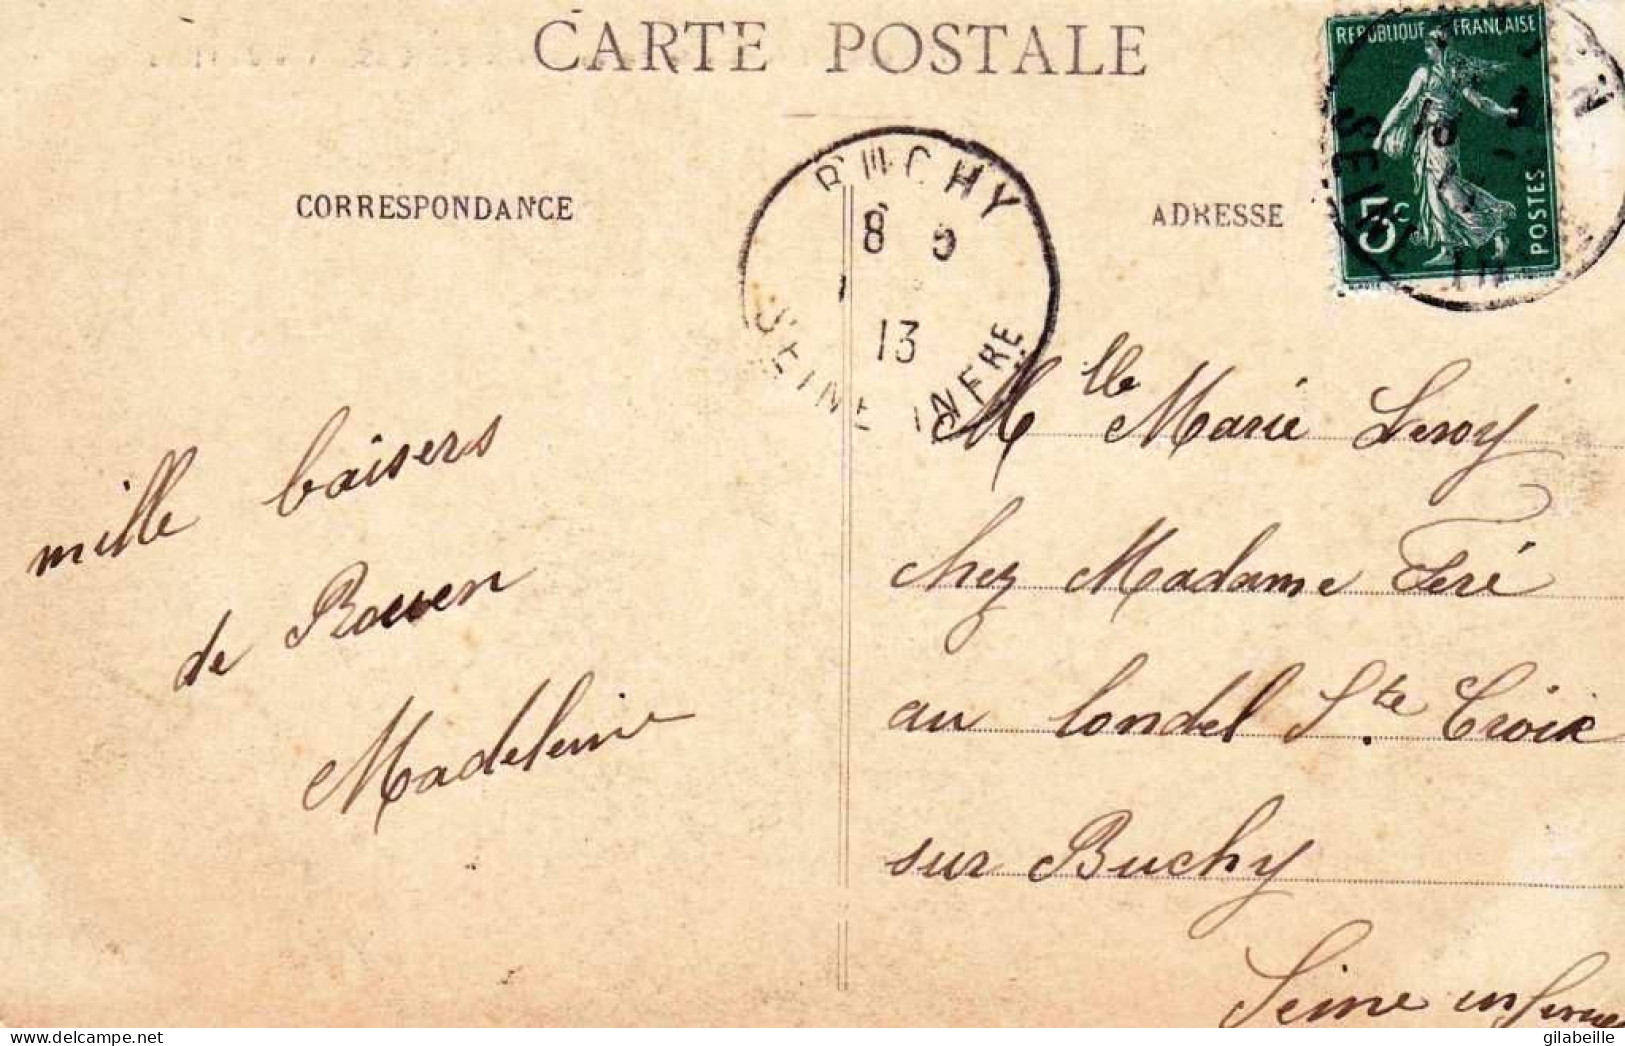 CARTE POSTALE
CORRESPONDANCE
ADRESSE
REPUBLIQUE FRANÇAISE
5c
POSTES
BUCHY
8 5
13
SEINE INFRE
SEINE IN
mille baisers
de Rouen
Madeleine
Mlle Marie Leroy
chez Madame Feré
au Londel Ste Croix
sur Buchy
Seine inferieure
www.delcampe.net
gilabeille